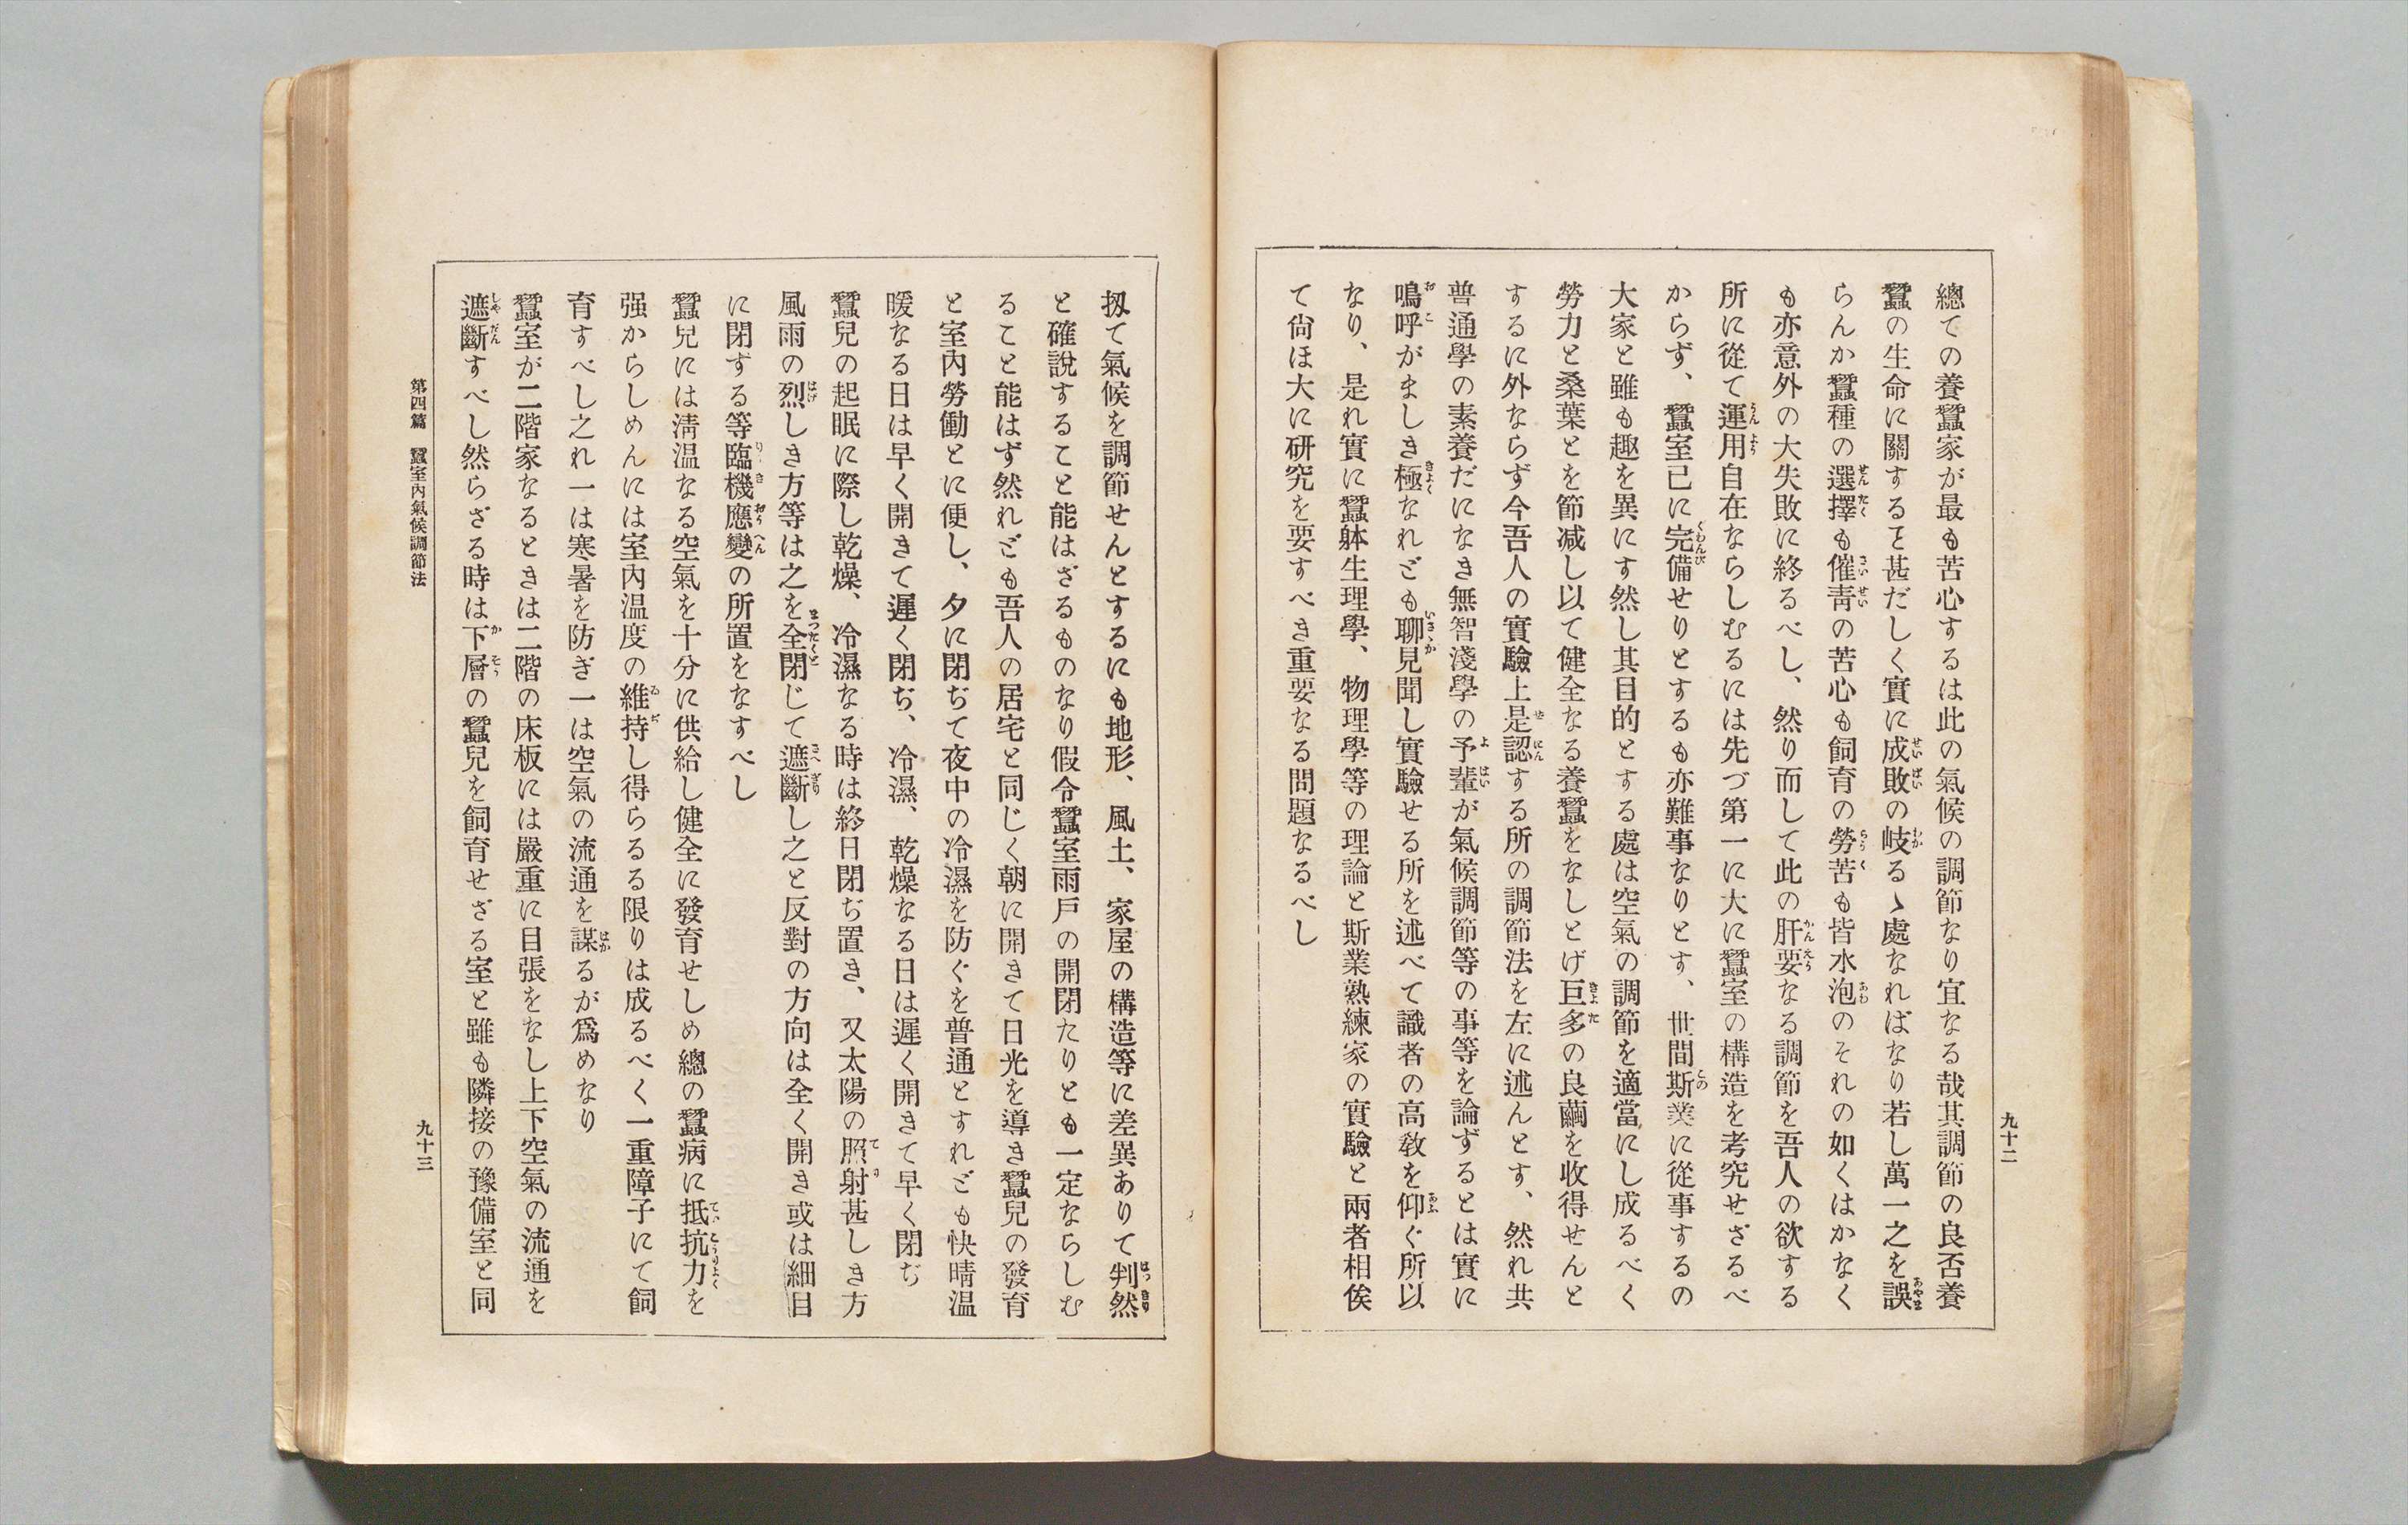 總ての養蠶家が最も苦心するは此の氣候の調節なり宜なる哉其調節の良否養
蠶の生命に關するヿ甚だしく實に成敗の岐るゝ處なればなり若し萬一之を誤
らんか蠶種の選擇も催靑の苦心も飼育の勞苦も皆水泡のそれの如くはかなく
も亦意外の大失敗に終るべし、然り而して此の肝要なる調節を吾人の欲する
所に從て運用自在ならしむるには先づ第一に大に蠶室の構造を考究せざるべ
からず、蠶室已に完備せりとするも亦難事なりとす、世間斯業に從事するの
大家と雖も趣を異にす然し其目的とする處は空氣の調節を適當にし成るべく
勞力と桑葉とを節减し以て健全なる養蠶をなしとげ巨多の良繭を收得せんと
するに外ならず今吾人の實驗上是認する所の調節法を左に述んとす、然れ共
普通學の素養だになき無智淺學の予輩が氣候調節等の事等を論ずるとは實に
嗚呼がましき極なれども聊見聞し實驗せる所を述べて識者の高敎を仰ぐ所以
なり、是れ實に蠶躰生理學、物理學等の理論と斯業熟練家の實驗と兩者相俟
て尙ほ大に研究を要すべき重要なる問題なるべし
九十二
扨て氣候を調節せんとするにも地形、風土、家屋の構造等に差異ありて判然
と確說すること能はざるものなり假令蠶室雨戶の開閉たりとも一定ならしむ
ること能はず然れども吾人の居宅と同じく朝に開きて日光を導き蠶兒の發育
と室內勞働とに便し、夕に閉ぢて夜中の冷濕を防ぐを普通とすれども快晴温
暖なる日は早く開きて遲く閉ぢ、冷濕、乾燥なる日は遲く開きて早く閉ぢ
蠶兒の起眠に際し乾燥、冷濕なる時は終日閉ぢ置き、又太陽の照射甚しき方
風雨の烈しき方等は之を全閉じて遮斷し之と反對の方向は全く開き或は細目
に閉ずる等臨機應變の所置をなすべし
蠶兒には淸温なる空氣を十分に供給し健全に發育せしめ總の蠶病に抵抗力を
强からしめんには室內温度の維持し得らるる限りは成るべく一重障子にて飼
育すべし之れ一は寒暑を防ぎ一は空氣の流通を謀るが爲めなり
蠶室が二階家なるときは二階の床板には嚴重に目張をなし上下空氣の流通を
遮斷すべし然らざる時は下層の蠶兒を飼育せざる室と雖も隣接の豫備室と同
第四篇　蠶室內氣候調節法
九十三